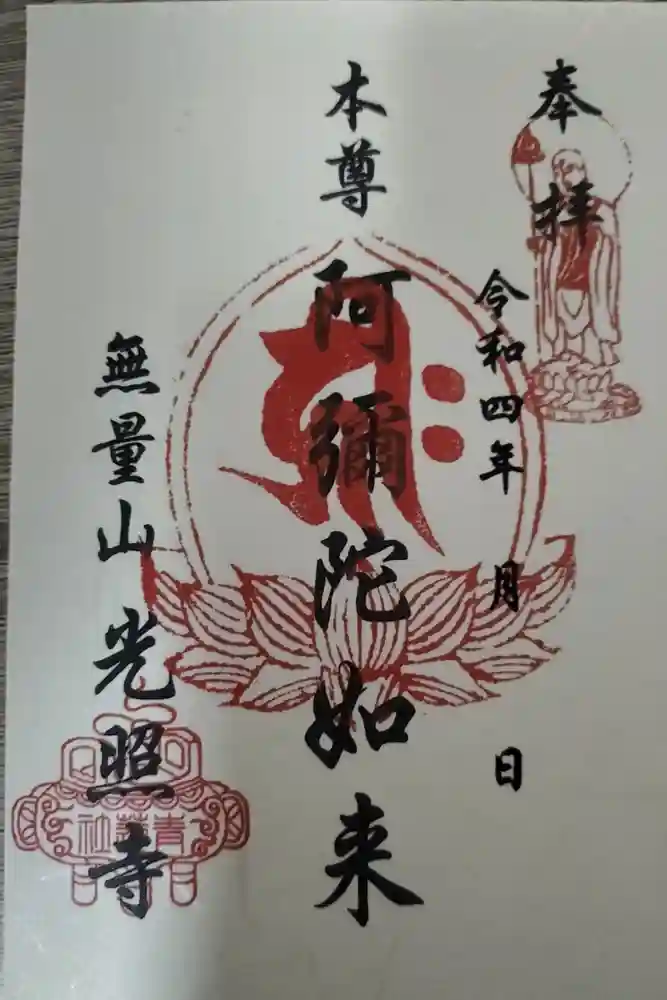 奉拝
令和四年　月　日
本尊
阿彌陀如来
無量山光照寺